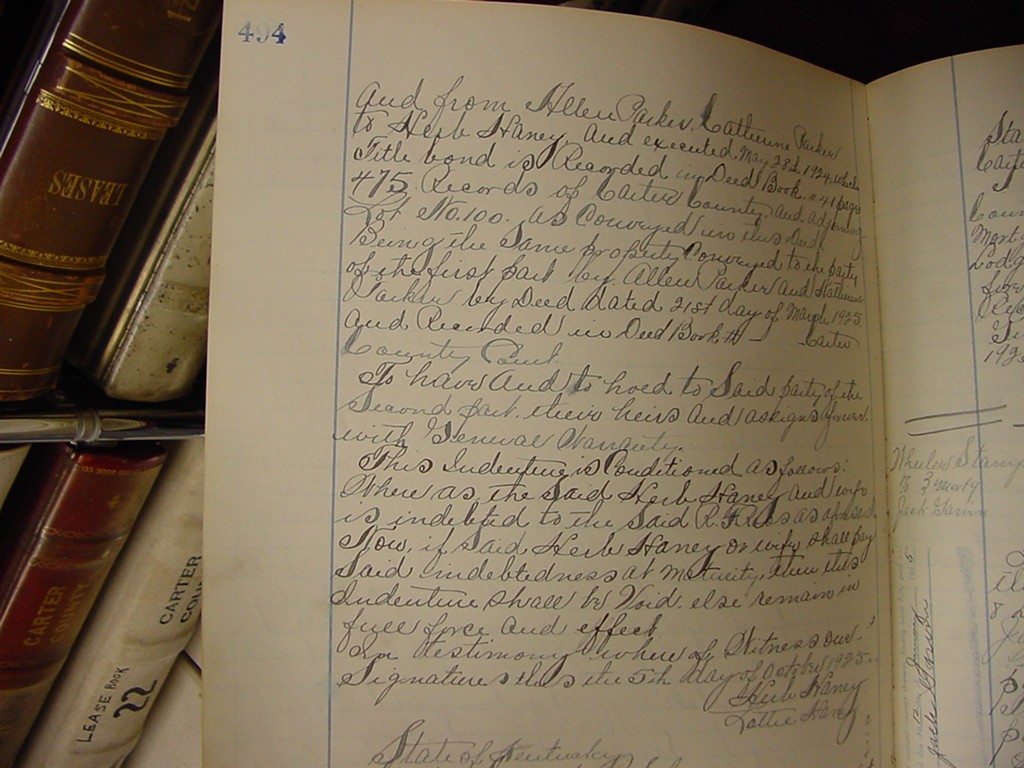 494
and from Allen Parker, Catherine Parker
to Herb Haney, and executed, May 28d, 1924, which
Title bond is Recorded in Deed Book # 41 page
475 Records of Carter County, and adjoining
Lot No. 100. as Conveyed in this Deed
Being the Same property Conveyed to the party
of the first part by Allen Parker and Catherine
Parker by Deed dated 21st day of March 1925.
and Recorded in Deed Book # — Carter
County Court.
To have and to hoed to Said party of the
Second part, their heirs and assigns forever
with General Warranty.
This Indenture is Conditioned as follows:
Where as, the Said Herb Haney and wife
is indebted to the Said R. F. as aforesaid
Now, if Said Herb Haney or wife shall pay
Said indebtedness at Maturity, then this
Indenture shall be Void. else remain in
full force and effect
In testimony where of Witness our
Signatures this the 5th day of October 1925.
Herb Haney
Lottie Haney
State of Kentucky
LEASES
CARTER
COUNTY
CARTER
LEASE BOOK
22
Sta
Mort
Lodg
192
Wheeler Stamp
to } Mortg
Jack